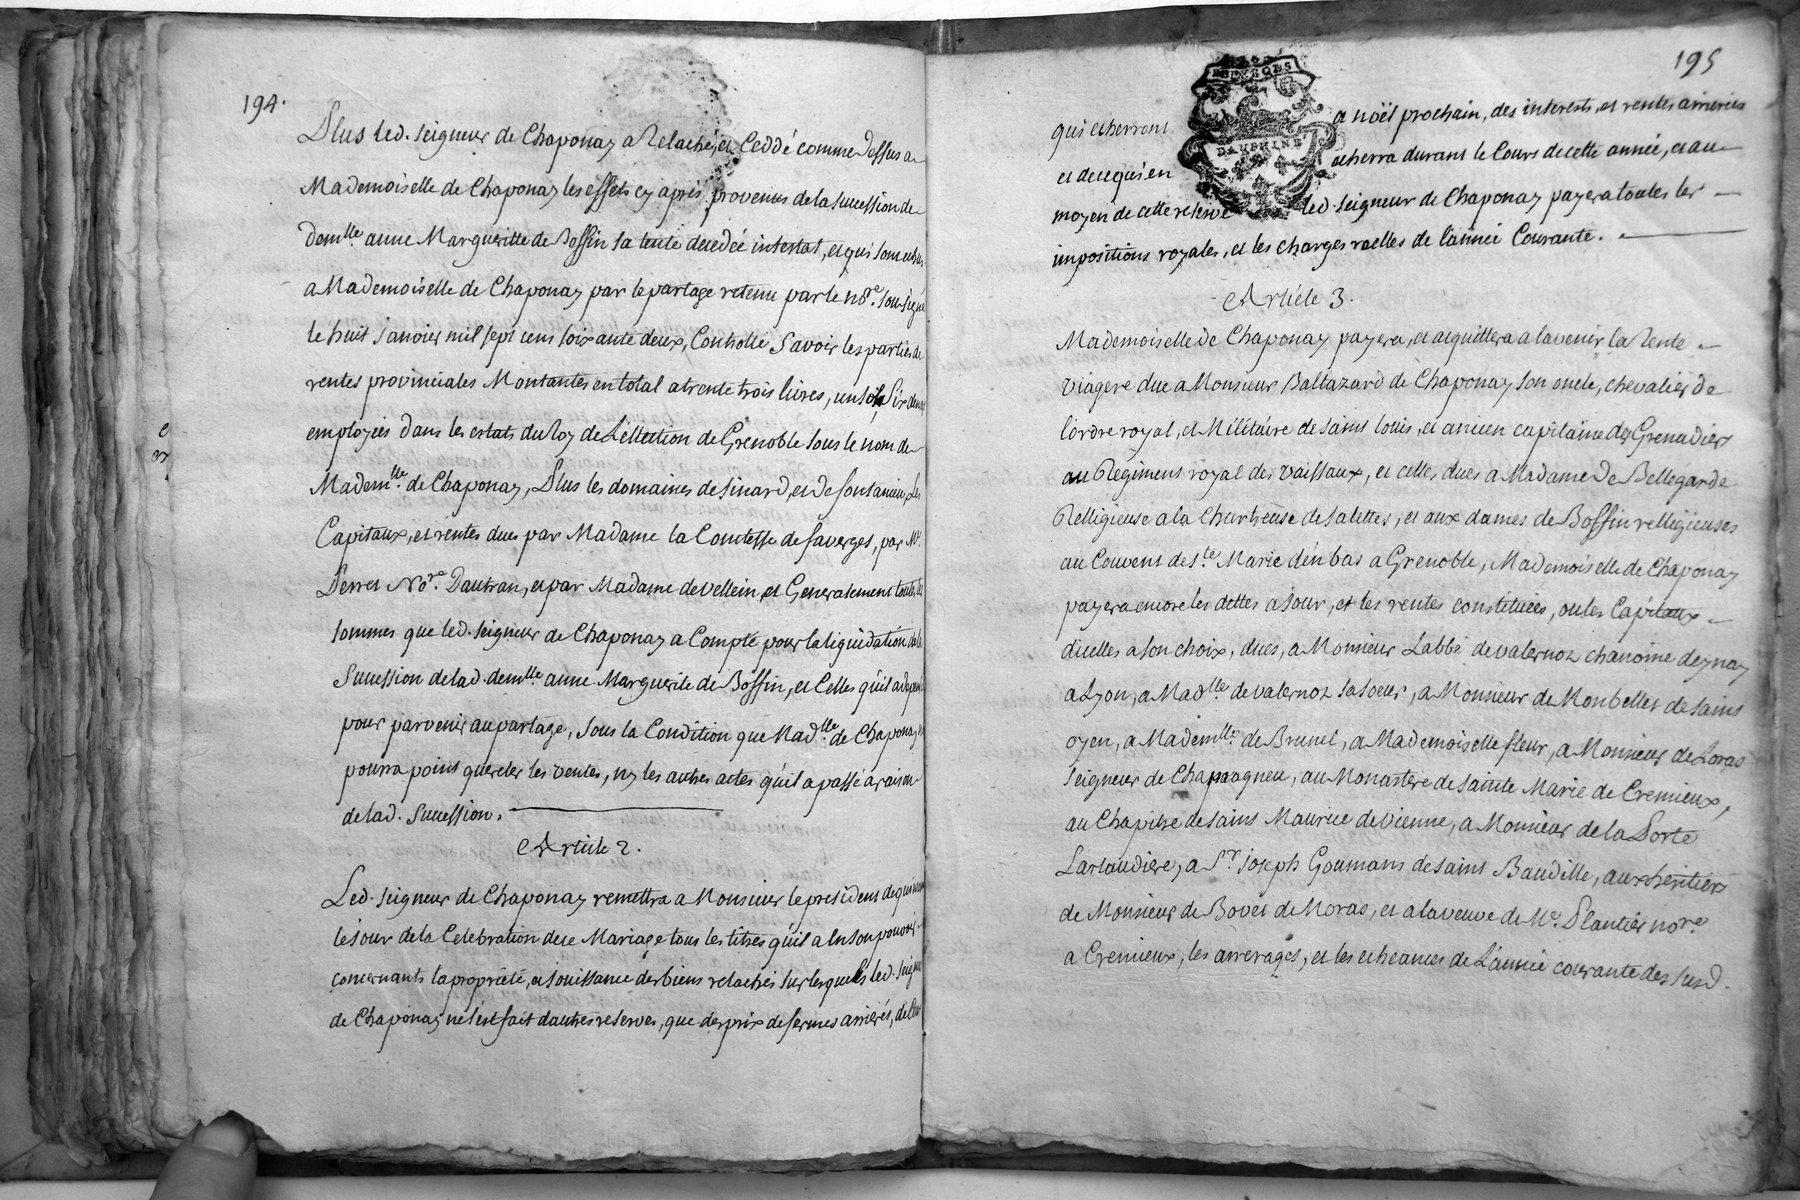 194.
Plus led. seigneur de Chaponay a Relaché, et Ceddé comme dessus a
Mademoiselle de Chaponay les effets cy aprés provenus de la succession de
demlle anne Margueritte de Boffin sa tente decedée intestat, et qui sont echus
a Mademoiselle de Chaponay par le partage retenu par le nore. soussigné
le huit Janvier mil sept cens soixante deux, Controllé Savoir les parties de
rentes provinciales Montantes en total a trente trois livres, un sol Six deniers
employées dans les estats du Roy de L'éllection de Grenoble sous le nom de
Mademlle de Chaponay, Plus les domaines de Sinard, et de fontanieu, Les
Capitaux, et rentes dues par Madame la Comtesse de faverges, par Mr.
Perret Nore. Dautran, et par Madame de vellein, et Generalement toutes les
sommes que led. seigneur de Chaponay a Compté pour la liquidation de la
Succession de lad. demlle. anne Marguerite de Boffin, et Celles qu'il a
pour parvenir au partage, sous la Condition que Madlle de Chaponay ne
pourra point quereler les ventes, ny les autres actes qu'il a passé a raison
de lad. Succession.
Article 2.
Led. seigneur de Chaponay remettra a Monsieur le president de
le Jour de la Celebration de ce Mariage tous les titres qu'il a en son pouvoir
concernants la propriété, et Jouissance des biens relachés sur lesquels led. seigneur
de Chaponay ne s'est fait d'autres reserves, que des prix de fermes arrierés, de
195
DAUPHINE
qui echerront a noël prochain, des interests, et rentes arrieries
et de ce qui en echerra durant le Cours de cette année, et au
moyen de cette reserve led. seigneur de Chaponay payera toutes les
impositions royales, et les charges reelles de l'année Courante.
Article 3.
Mademoiselle de Chaponay payera, et acquittera a l'avenir la Rente
viagere due a Monsieur Baltazard de Chaponay son oncle, chevalier de
l'ordre royal, et Militaire de saint louis, et ancien capitaine des Grenadiers
au Regiment royal des vaissaux, et celle, dues a Madame de Bellegarde
Relligieuse a la Chartreuse de salettes, et aux dames de Boffin relligieuses
au Couvent de Ste. Marie d'en bas a Grenoble, Mademoiselle de Chaponay
payera encore les dettes a Jour, et les rentes constituées, ou les Capitaux
d'icelles a son choix, dues, a Monsieur Labbé de valernoz chanoine deynay
a Lyon, a Madlle de valernoz sa soeur, a Monsieur de Monbellet de saint
oyen, a Mademlle. de Brunel, a Mademoiselle fleur, a Monsieur de Loras
seigneur de Chamagneu, au Monastere de sainte Marie de Cremieux,
au Chapitre de saint Maurice de vienne, a Monsieur de la Porte
Lartaudiere, a Sr. Joseph Goumans de saint Baudille, aux heritiers
de Monsieur de Bovet de Moras, et a la veuve de Me. Plantier nore.
a Cremieux, les arrerages, et les echeances de L'année courante des susd.